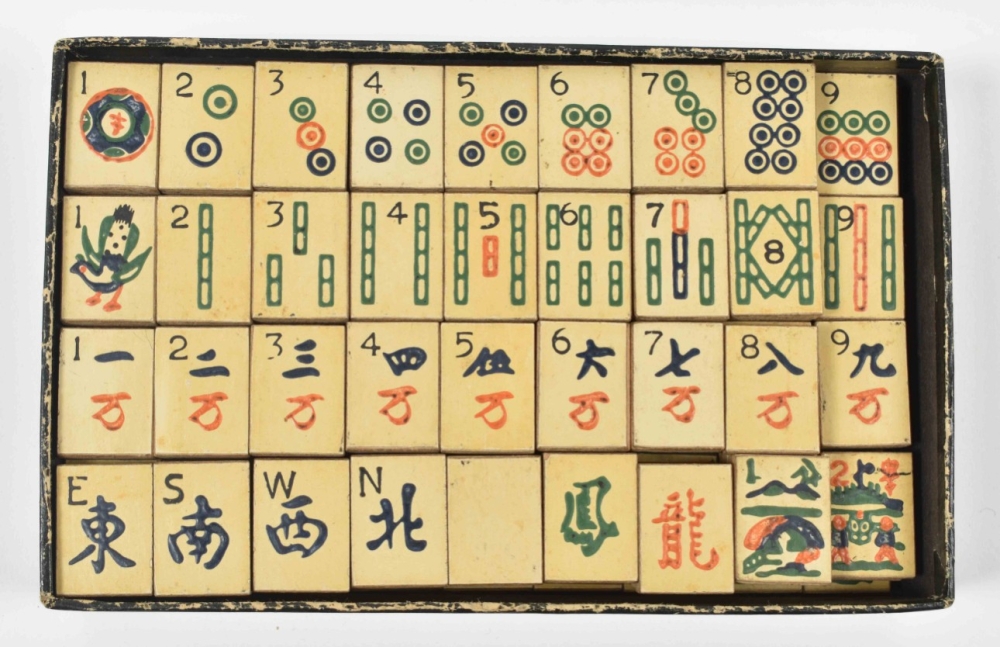 1 2 3 4 5 6 7 8 9
1 2 3 4 5 6 7 8 9
1 2 3 4 5 6 7 8 9
一 二 三 四 伍 六 七 八 九
万 万 万 万 万 万 万 万 万
E S W N 1 2
東 南 西 北 鳳 龍